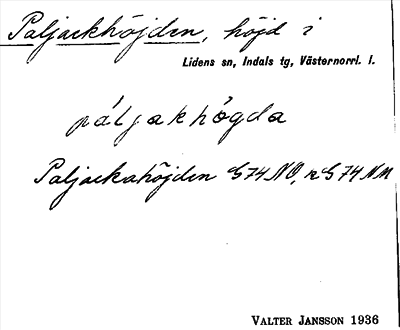 Paljackhöjden, höjd i
Lidens sn, Indals tg, Västernorrl. l.
páljakhǫ́gda
Paljackahöjden G74NO, r G74NM
VALTER JANSSON 1936